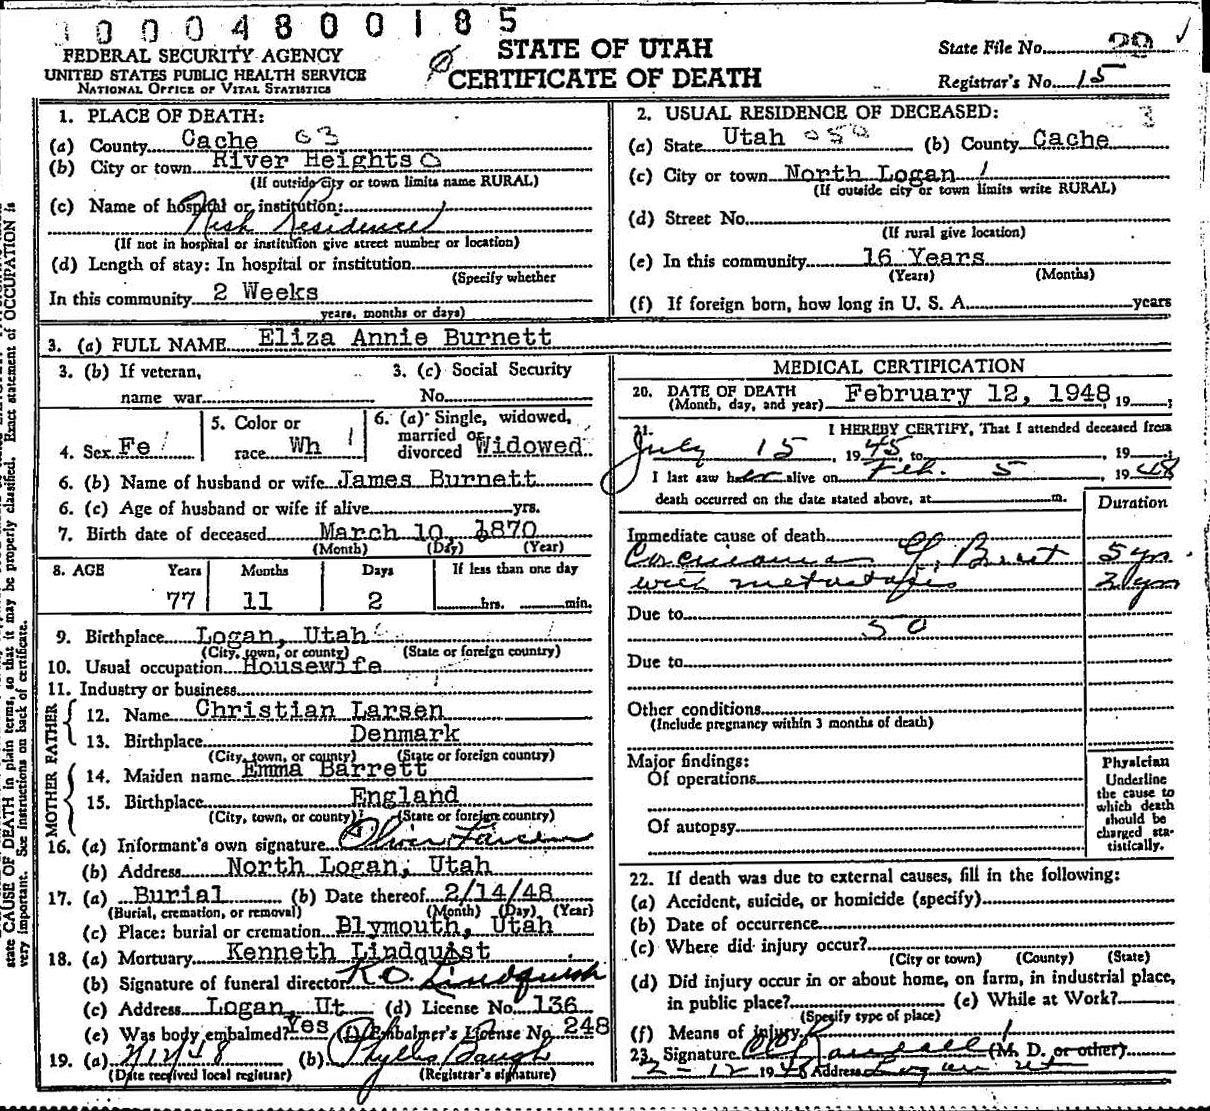 10004800185
FEDERAL SECURITY AGENCY
UNITED STATES PUBLIC HEALTH SERVICE
NATIONAL OFFICE OF VITAL STATISTICS
STATE OF UTAH
CERTIFICATE OF DEATH
State File No. 20
Registrar's No. 15
1. PLACE OF DEATH:
(a) County Cache 03
(b) City or town River Heights 0
(If outside city or town limits name RURAL)
(c) Name of hospital or institution:
Nish Residence
(If not in hospital or institution give street number or location)
(d) Length of stay: In hospital or institution
(Specify whether
In this community 2 Weeks
years, months or days)
2. USUAL RESIDENCE OF DECEASED: 3
(a) State Utah 050 (b) County Cache
(c) City or town North Logan 1
(If outside city or town limits write RURAL)
(d) Street No.
(If rural give location)
(e) In this community 16 Years
(Years) (Months)
(f) If foreign born, how long in U. S. A. years
3. (a) FULL NAME Eliza Annie Burnett
3. (b) If veteran,
name war
3. (c) Social Security
No.
4. Sex Fe
5. Color or
race Wh
6. (a) Single, widowed,
married or
divorced Widowed
6. (b) Name of husband or wife James Burnett
6. (c) Age of husband or wife if alive yrs.
7. Birth date of deceased March 10, 1870
(Month) (Day) (Year)
8. AGE Years Months Days If less than one day
77 11 2 hrs. min.
9. Birthplace Logan, Utah
(City, town, or county) (State or foreign country)
10. Usual occupation Housewife
11. Industry or business
FATHER
12. Name Christian Larsen
13. Birthplace Denmark
(City, town, or county) (State or foreign country)
MOTHER
14. Maiden name Emma Barrett
15. Birthplace England
(City, town, or county) (State or foreign country)
16. (a) Informant's own signature Oliver Larsen
(b) Address North Logan, Utah
17. (a) Burial (b) Date thereof 2/14/48
(Burial, cremation, or removal) (Month) (Day) (Year)
(c) Place: burial or cremation Plymouth, Utah
18. (a) Mortuary Kenneth Lindquist
(b) Signature of funeral director K O Lindquist
(c) Address Logan, Ut (d) License No. 136
(e) Was body embalmed? Yes (f) Embalmer's License No. 248
19. (a) 2/12/48 (b) Phyllis Baugh
(Date received local registrar) (Registrar's signature)
MEDICAL CERTIFICATION
20. DATE OF DEATH February 12, 1948, 19
(Month, day, and year)
21. I HEREBY CERTIFY, That I attended deceased from
July 15, 1945, to , 19
I last saw her alive on Feb. 5, 1948
death occurred on the date stated above, at m.
Duration
Immediate cause of death
Carcinoma of Breast 5 yrs.
with metastases 2 yrs
Due to
50
Due to
Other conditions
(Include pregnancy within 3 months of death)
Major findings:
Of operations
Of autopsy
Physician
Underline
the cause to
which death
should be
charged sta-
tistically.
22. If death was due to external causes, fill in the following:
(a) Accident, suicide, or homicide (specify)
(b) Date of occurrence
(c) Where did injury occur?
(City or town) (County) (State)
(d) Did injury occur in or about home, on farm, in industrial place,
in public place? (e) While at Work?
(Specify type of place)
(f) Means of injury
23. Signature Randall (M. D. or other)
2-12 1948 Address Logan Ut
state CAUSE OF DEATH in plain terms, so that it may be properly classified. Exact statement of OCCUPATION is
very important. See instructions on back of certificate.